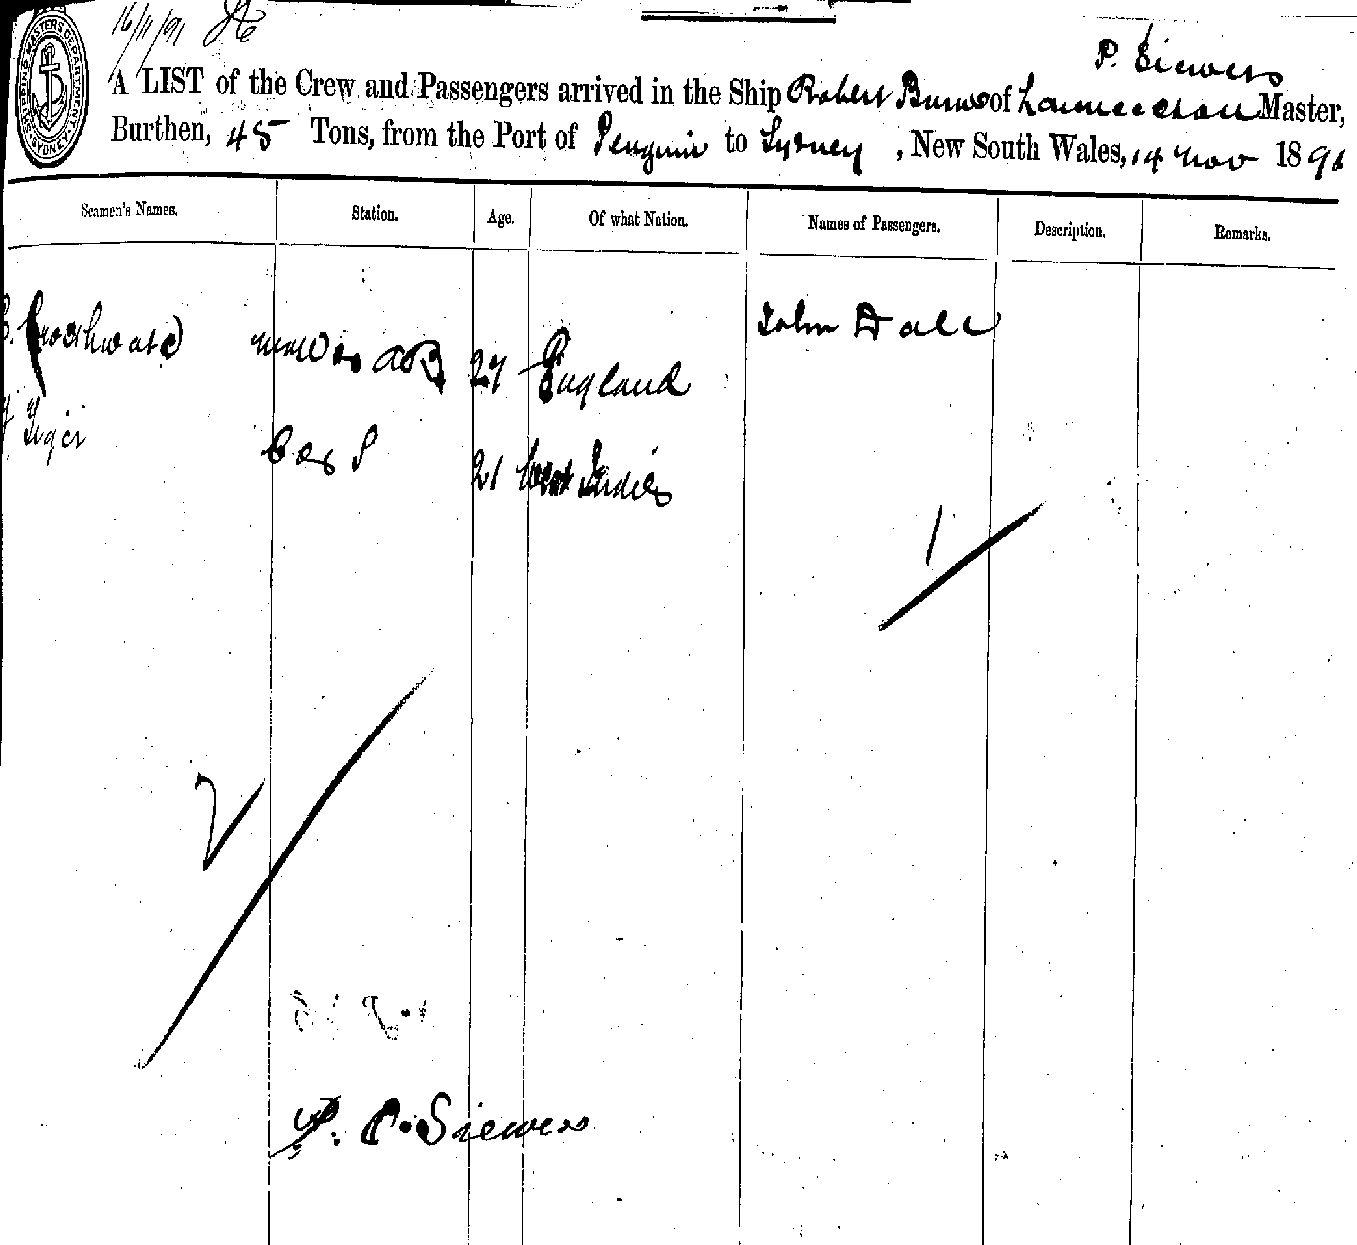 16/11/91
P. Siewers
A LIST of the Crew and Passengers arrived in the Ship Robert Burns of Launceston Master,
Burthen, 45 Tons, from the Port of Penguin to Sydney, New South Wales, 14 Nov 1891
SHIPPING MASTER'S DEPARTMENT SYDNEY
Seamen's Names. Station. Age. Of what Nation. Names of Passengers. Description. Remarks.
John Hall
27 England
21 West Indies
1
2
P. C. Siewers